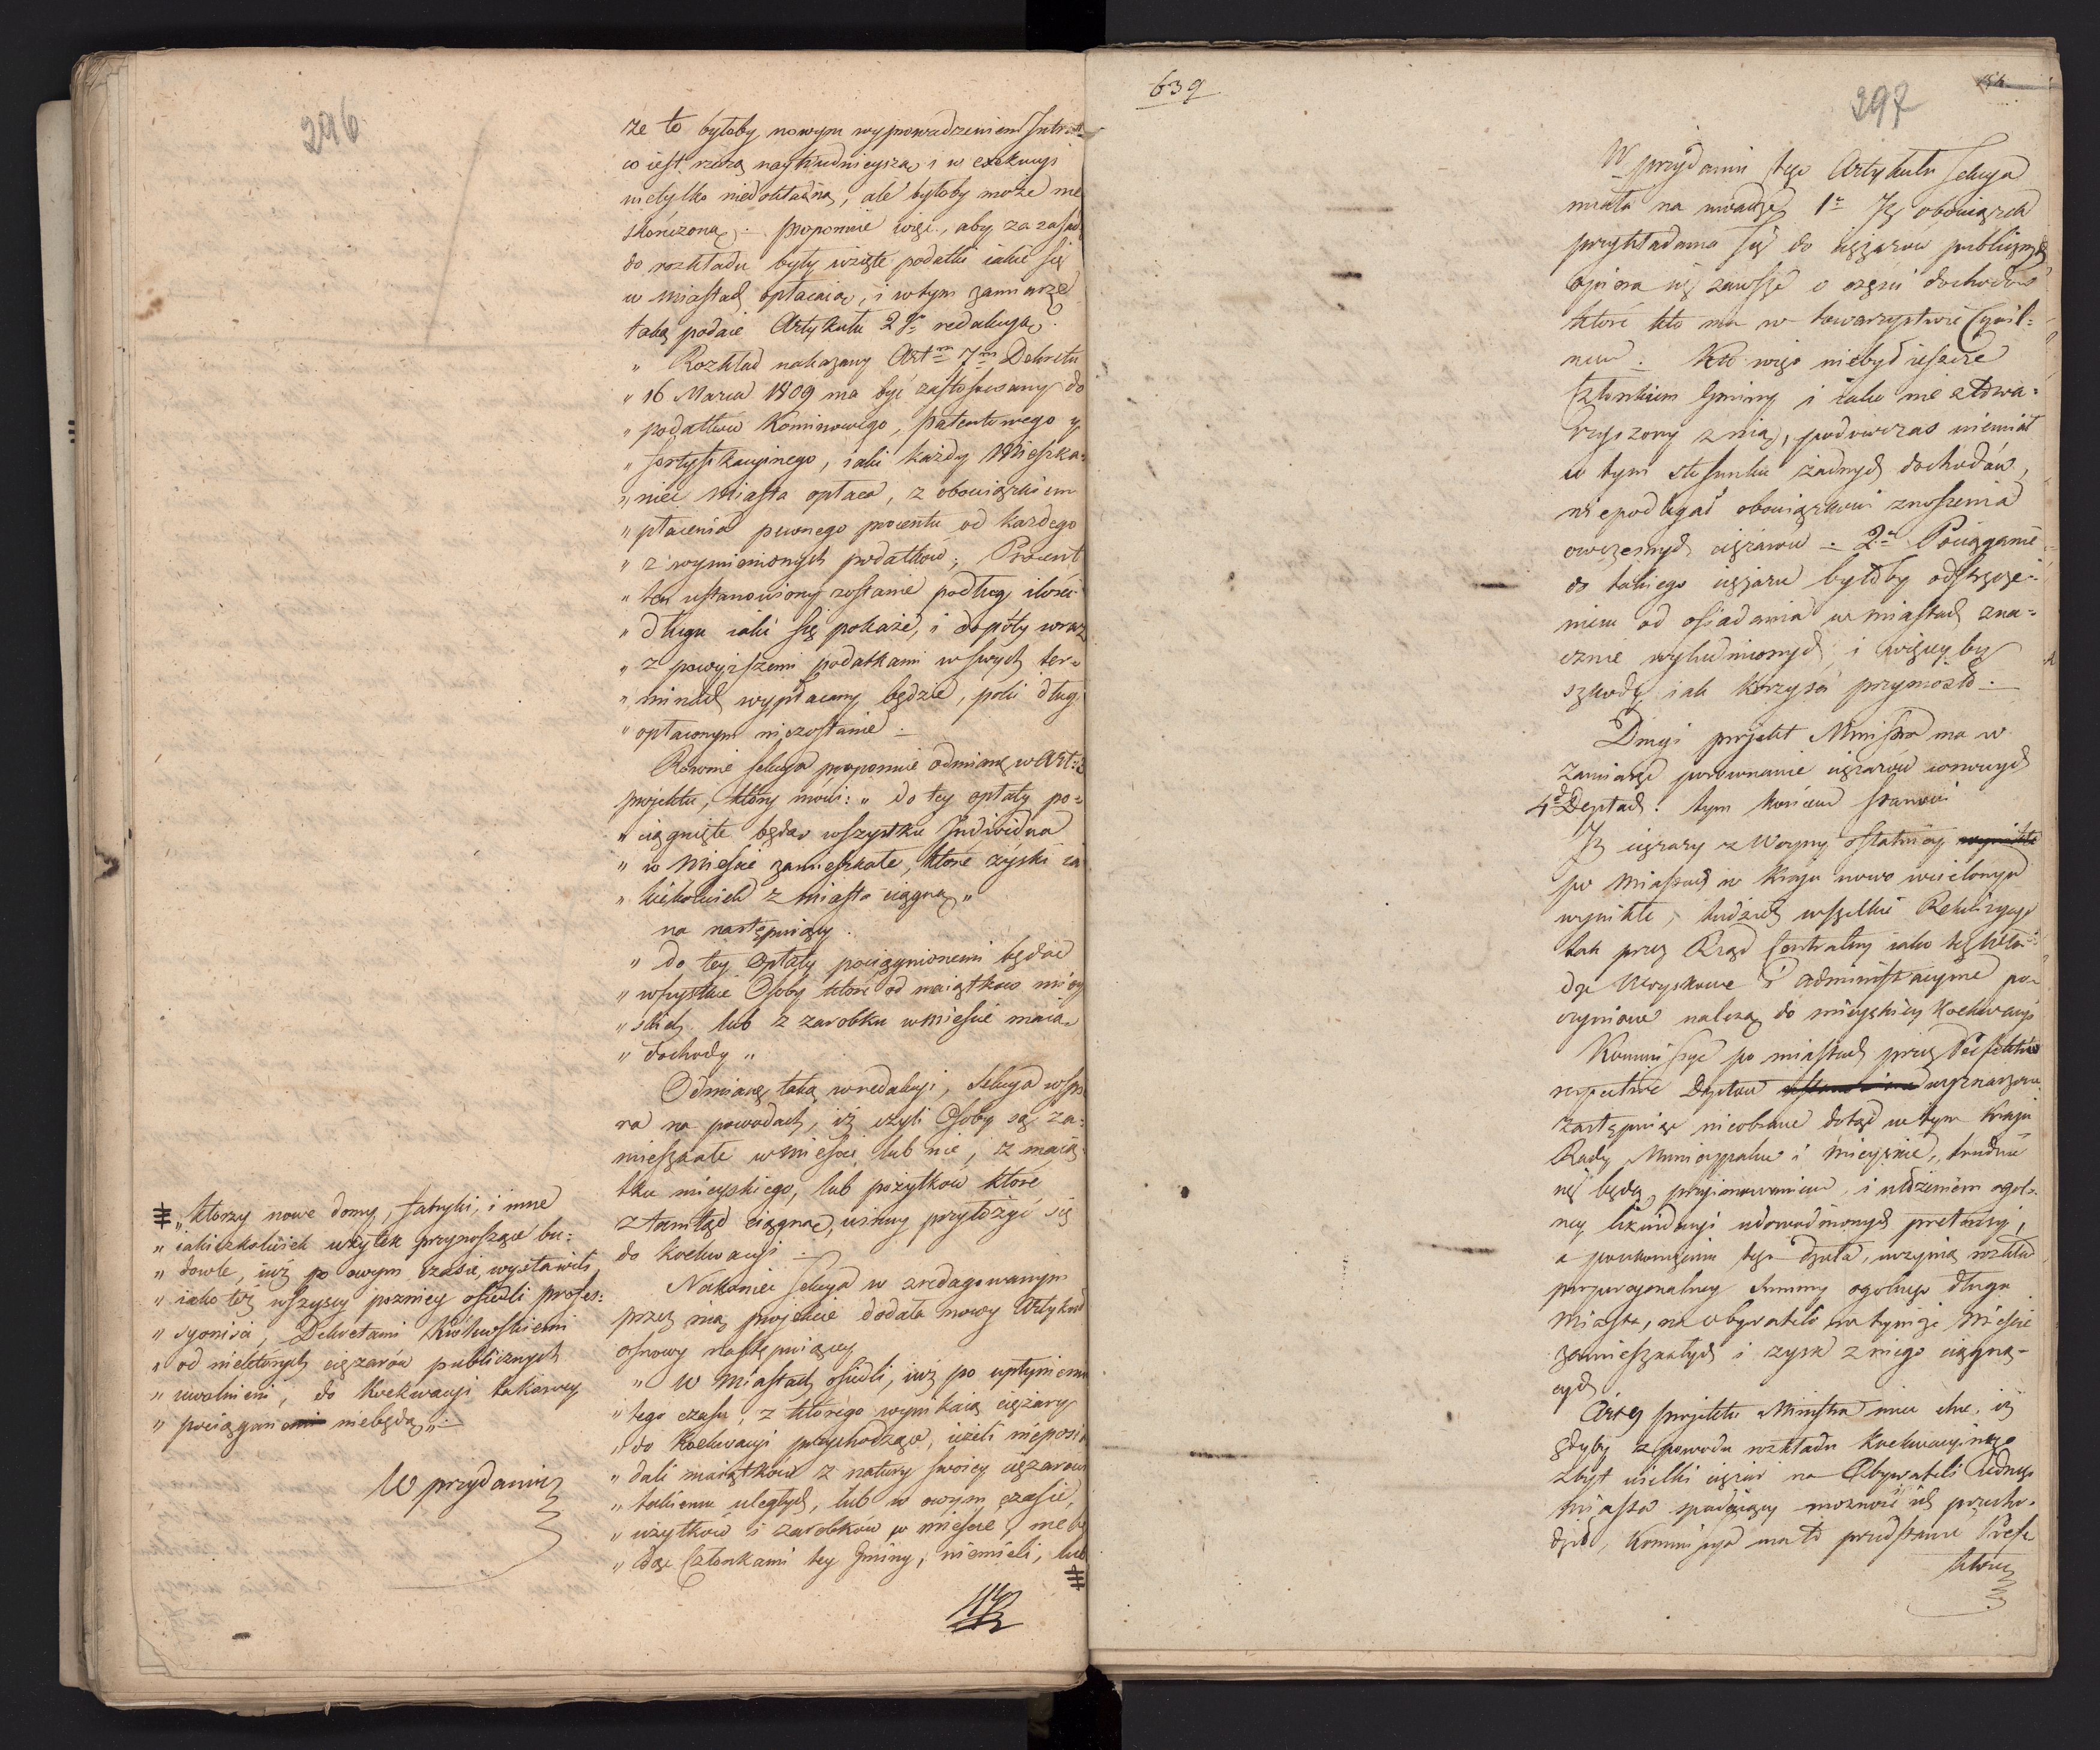 296
że to byłoby nowym wyprowadzeniem Intrat
co iest rzeczą naytrudnieyszą i w exekucyi
nietylko niedokładną, ale byłoby może nie
skończoną. proponuie więc, aby za zasadę
do rozkładu były wzięte podatki iakie się
w Miastach opłacaią, i w tym zamiarze
taką podaie Artykułu 2go redakcyą.
„ Rozkład nakazany Artm 7m Dekretu
„ 16 Marca 1809 ma być zastosowany do
„ podatków Kominowego, patentowego y
„ fortyfikacyinego, iaki każdy Mieszka-
„ niec Miasta opłaca, z obowiązkiem
„ płacenia pewnego procentu od każdego
„ z wymienionych podatków; Procent
„ ten ustanowiony zostanie podług ilości
„ długu iaki się pokaże, i dopóty wraz
„ z powyższemi podatkami w swych ter-
„ minach wypłacany będzie, póki dług
„ opłaconym niezostanie.
Równie Sekcya proponuie odmianę w Art: 3
projektu, który mówi: „ do tey opłaty po-
„ ciągnięte będą wszystkie Indiwidua
„ w Mieście zamieszkałe, które zyski ia
„ kieżkolwiek z Miasta ciągną „
na następuiący.
„ Do tey opłaty pociągnionemi będą
„ wszystkie Osoby które od maiątków miey
„ skich lub z zarobku w Mieście maią
„ dochody „
Odmianę taką w redakcyi, Sekcya wspie
ra na powodach, iż czyli Osoby są za-
mieszkałe w Mieście lub nie, z maią
tku mieyskiego, lub pożytków które
z tamtąd ciągną, winny przyłożyć się
do koekwacyi.
Nakoniec Sekcya w zredagowanym
przez nią projekcie dodała nowy Artykuł
osnowy następuiącey
„ W Miastach osiedli, iuż po upłynieniu
„ tego czasu, z którego wynikaią ciężary
„ do koekwacyi przychodzące, ieżeli nieposia
„ dali maiątków z natury swoiey ciężarowi
„ takiemu uległych, lub w owym czasie,
„ użytków i zarobków w mieście, nie bę
„ dąc Członkami tey Gminy, niemieli, lub
„ którzy nowe domy, fabryki, i inne
„ iakieżkolwiek użytek przynoszące bu-
„ dowle, iuż po owym czasie, wystawili,
„ iako też wszyscy pozniey osiedli profes-
„ syoniści, Dekretami Królewskiemi
„ od niektórych ciężarów publicznych
„ uwolnieni, do koekwacyi takowey
„ pociągani niebędą „.
W przydaniu
639
297
W przydaniu tego Artykułu Sekcya
miała na uwadze, 1o Iż obowiązek
przykładania się do ciężarów publicznych
opiera się zawsze o część dochodów
które kto ma w towarzystwie Cywil-
nem. Kto więc niebył ieszcze
Członkiem Gminy i iako nie stowa-
rzyszony z nią, podówczas niemiał
w tym stosunku żadnych dochodów,
niepodlegał obowiązkowi znoszenia
owczesnych ciężarów. 2o Pociąganie
do takiego ciężaru byłoby odstręcze-
niem od osiadania w miastach zna-
cznie wyludnionych, i więceyby
szkody iak korzyści przyniosło.
Drugi projekt Ministra ma w
zamiarze porównanie ciężarów w nowych
4ch Deptach: tym końcem stanowi
Iż ciężary z Woyny ostatniey
po Miastach w Kraju nowo wcielonym
wynikłe, tudzież wszelkie Rekwizycye
tak przez Rząd Centralny iako też Wła-
dze Woyskowe i administracyine po-
czynione należą do mieyskiey koekwacyi
Kommissye po miastach przez Prefektów
respective Deptów wyznaczone
zastępuiąc nieobrane dotąd w tym Kraju
Rady Municypalne i Mieyskie, trudnić
się będą, przyimowaniem, i ułożeniem ogol-
ney likwidacyi udowodnionych pretensyi,
a po ukończeniu tego dzieła, uczynią rozkład
proporcyonalney summy ogolnego długu
Miasta, na obywateli w tymże Mieście
zamieszkałych i zysk z niego ciągną-
cych
Art 9 projektu Ministra mieć chce, iż
gdyby z powodu rozkładu koekwacyinego
zbyt wielki ciężar na Obywateli iednego
Miasta spadaiący możność ich przecho-
dził, Kommissya ma to przedstawić Prefe
ktowi